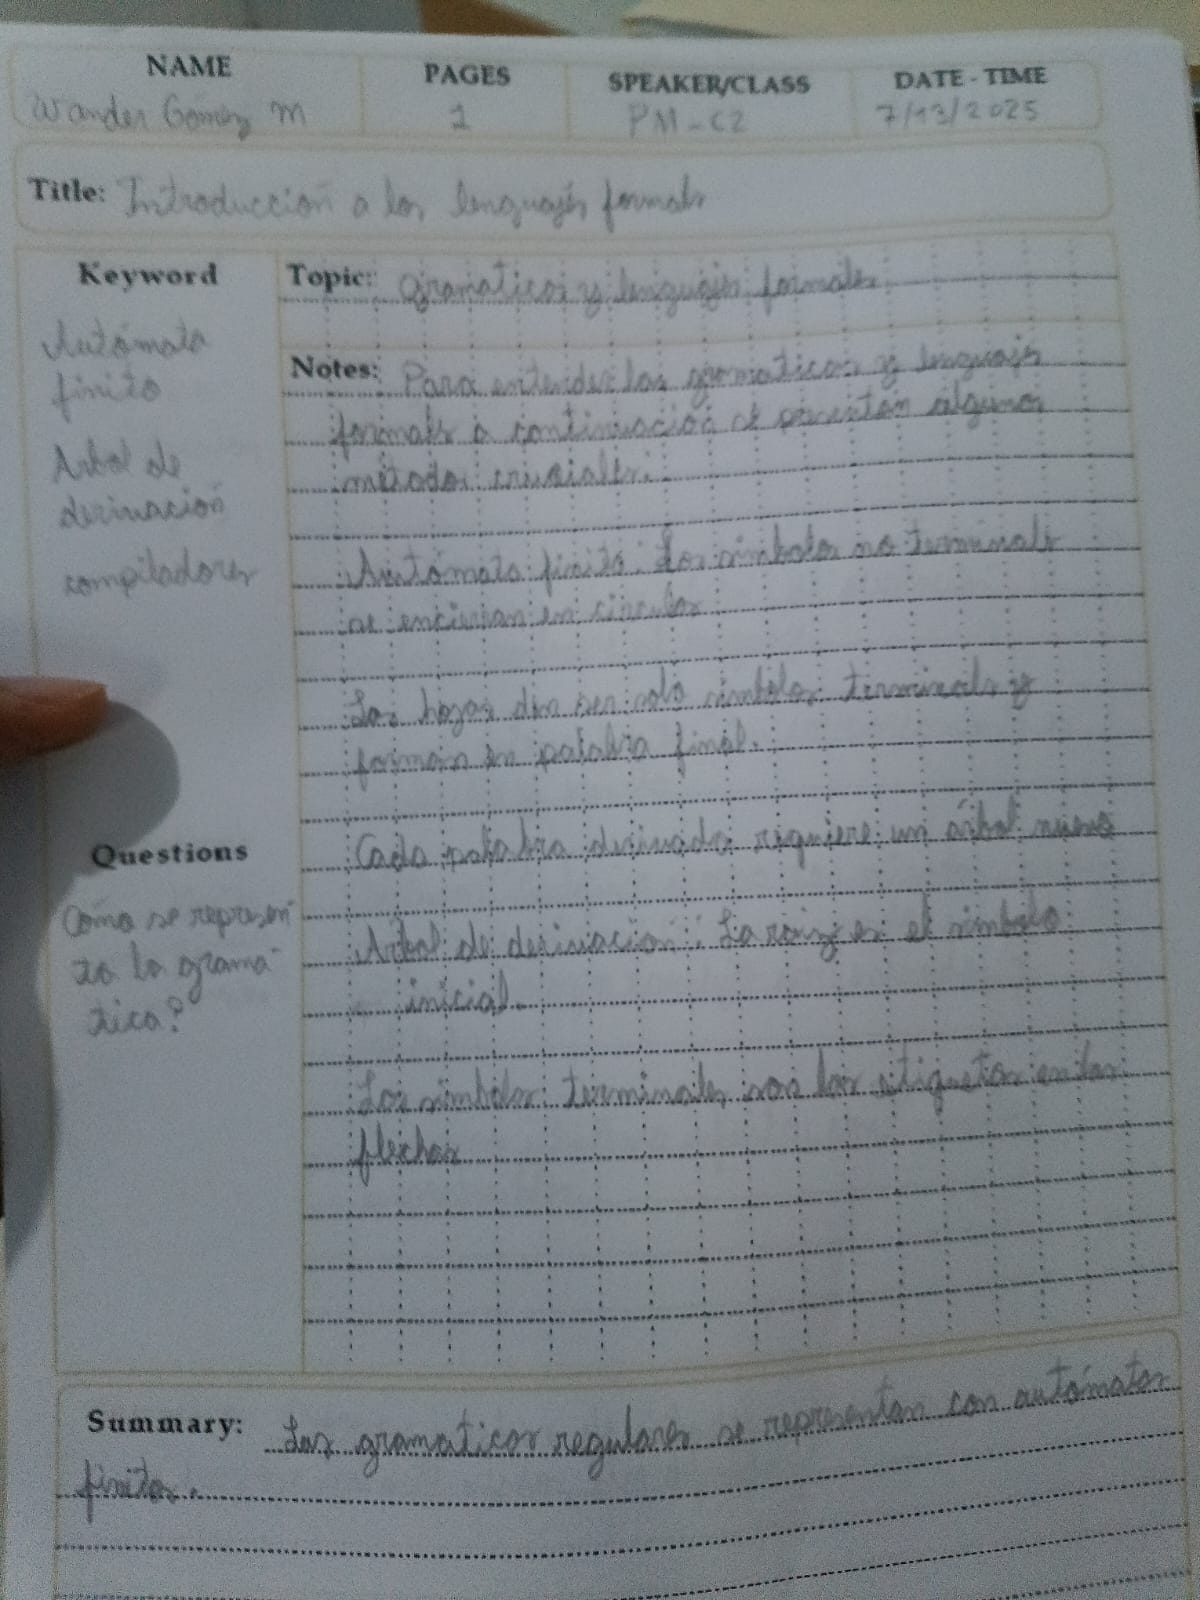 NAME
Wander Gómez M
PAGES
1
SPEAKER/CLASS
PM-C2
DATE - TIME
7/13/2025
Title: Introducción a los lenguajes formals
Keyword
Autómata
finito
Arbol de
derivación
compiladores
Topic: Gramaticas y lenguajes formales
Notes: Para entender las gramaticas y lenguajes
formals a continuación se presentan algunos
metodos cruciales.
Autómata finito: Los simbolos no terminals
se encierran en circulos
Las hojas den ser solo simbolos terminals y
forman en palabra final.
Cada palabra derivada requiere un árbol nuevo
Arbol de derivación: La raiz es el simbolo
inicial.
Los simbolos terminales son las etiquetas en las
flechas
Questions
Como se represen
ta la grama
tica?
Summary: Las gramaticas regulares se representan con autómatas
finitos.